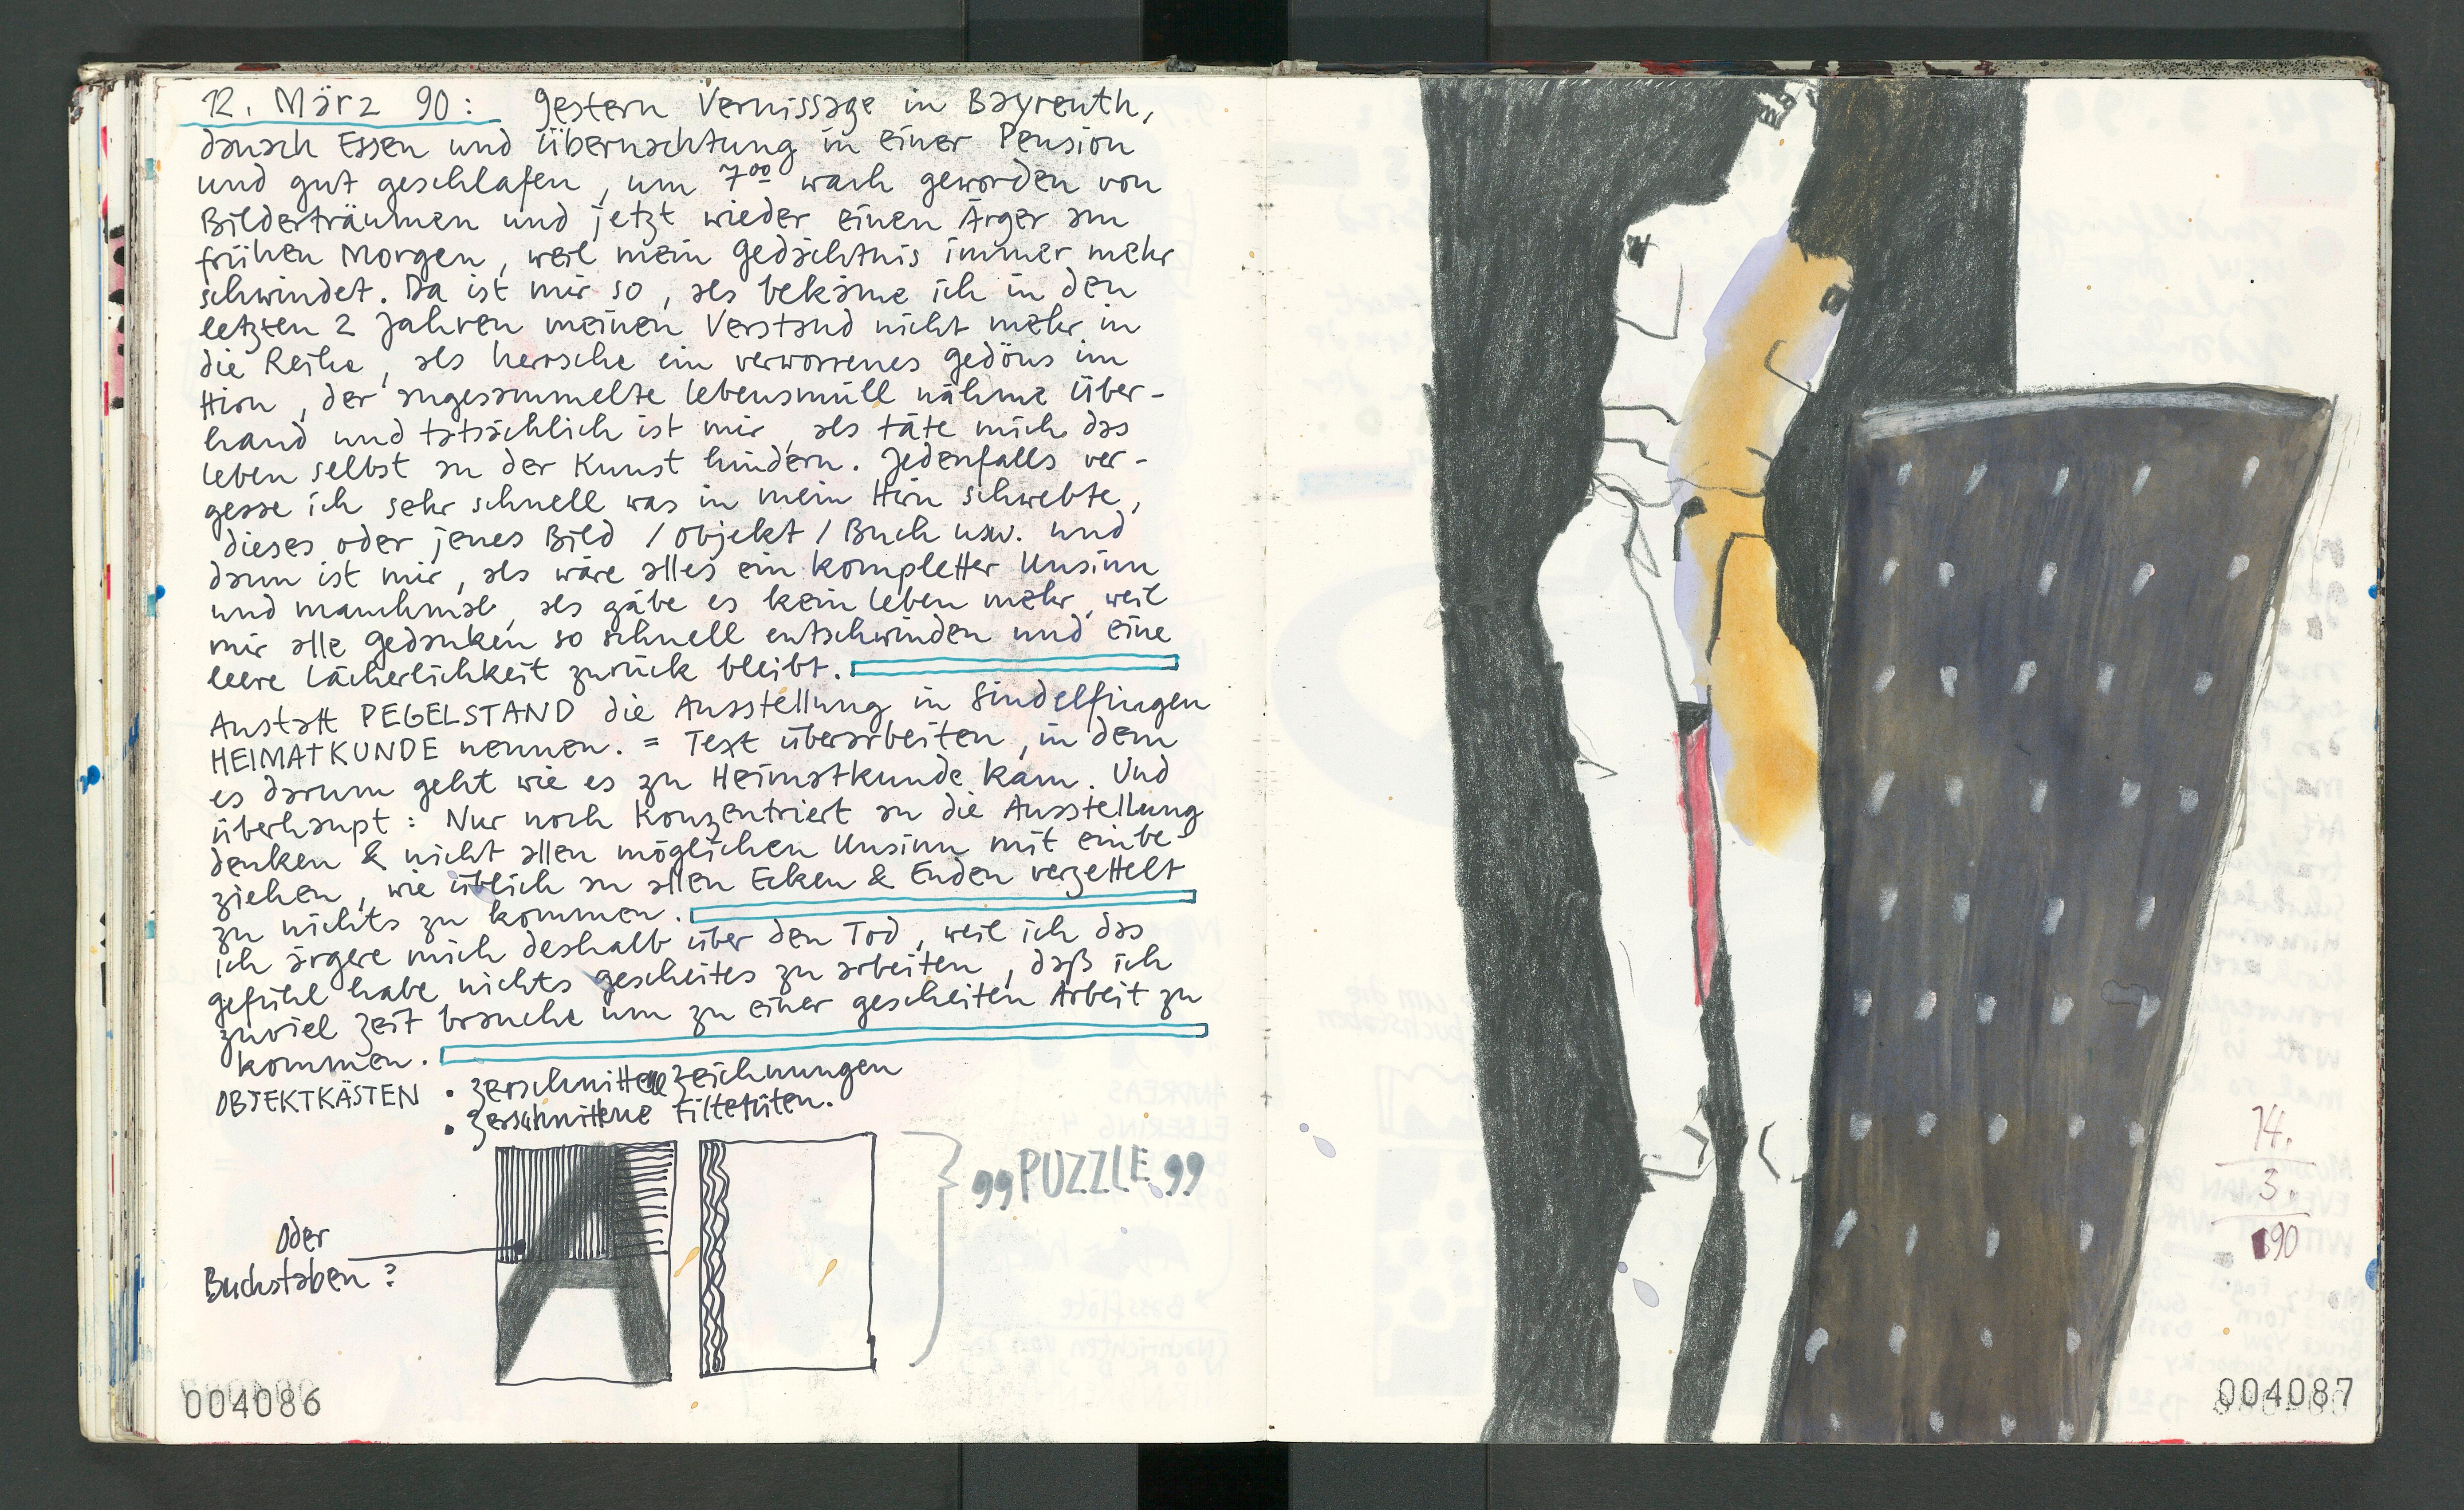 12. März 90: gestern Vernissage in Bayreuth,
danach Essen und Übernachtung in einer Pension
und gut geschlafen, um 7⁰⁰ wach geworden von
Bilderträumen und jetzt wieder einen Ärger am
frühen Morgen, weil mein Gedächtnis immer mehr
schwindet. Da ist mir so, als bekäme ich in den
letzten 2 Jahren meinen Verstand nicht mehr in
die Reihe, als herrsche ein verworrenes Gedöns im
Hirn, der angesammelte Lebensmüll nähme Über-
hand und tatsächlich ist mir, als täte mich das
Leben selbst an der Kunst hindern. Jedenfalls ver-
gesse ich sehr schnell was in mein Hirn schwebte,
dieses oder jenes Bild / Objekt / Buch usw. und
dann ist mir, als wäre alles ein kompletter Unsinn
und manchmal, als gäbe es kein Leben mehr, weil
mir alle Gedanken so schnell entschwinden und eine
leere Lächerlichkeit zurück bleibt.
Anstatt PEGELSTAND die Ausstellung in Sindelfingen
HEIMATKUNDE nennen. = Text überarbeiten, in dem
es darum geht wie es zu Heimatkunde kam. Und
überhaupt: Nur noch konzentriert an die Ausstellung
denken & nicht allen möglichen Unsinn mit einbe-
ziehen, wie üblich an allen Ecken & Enden verzettelt
zu nichts zu kommen.
ich ärgere mich deshalb über den Tod, weil ich das
gefühl habe nichts gescheites zu arbeiten, daß ich
zuviel Zeit brauche um zu einer gescheiten Arbeit zu
kommen.
OBJEKTKÄSTEN • Zerschnittene Zeichnungen
• Zerschnittene Filtertüten.
oder
Buchstaben?
A
„PUZZLE"
004086
14.
3.
90
004087